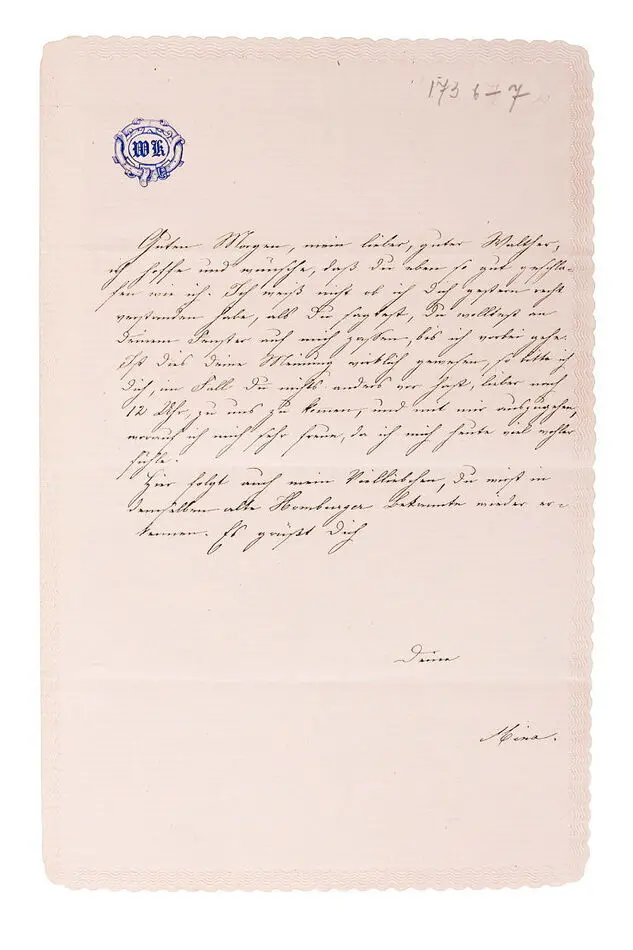 173 6-7
WK
Guten Morgen, mein lieber, guter Walther,
ich hoffe und wünsche, daß du eben so gut geschla-
fen wie ich. Ich weiß nicht ob ich dich gestern recht
verstanden habe, als Du sagtest, Du wolltest an
deinem Fenster auf mich passen, bis ich vorbei gehe.
Ist dies deine Meinung wirklich gewesen, so bitte ich
dich, im Fall Du nichts anders vor hast, lieber nach
12 Uhr, zu uns zu komen, und mit mir auszugehen,
worauf ich mich sehr freue, da ich mich heute viel wohler
fühle.
Hier folgt auch mein Vielliebchen, du wirst in
demselben alte Homburger Bekannte wieder er-
kennen. Es grüßt Dich
Deine
Mina.